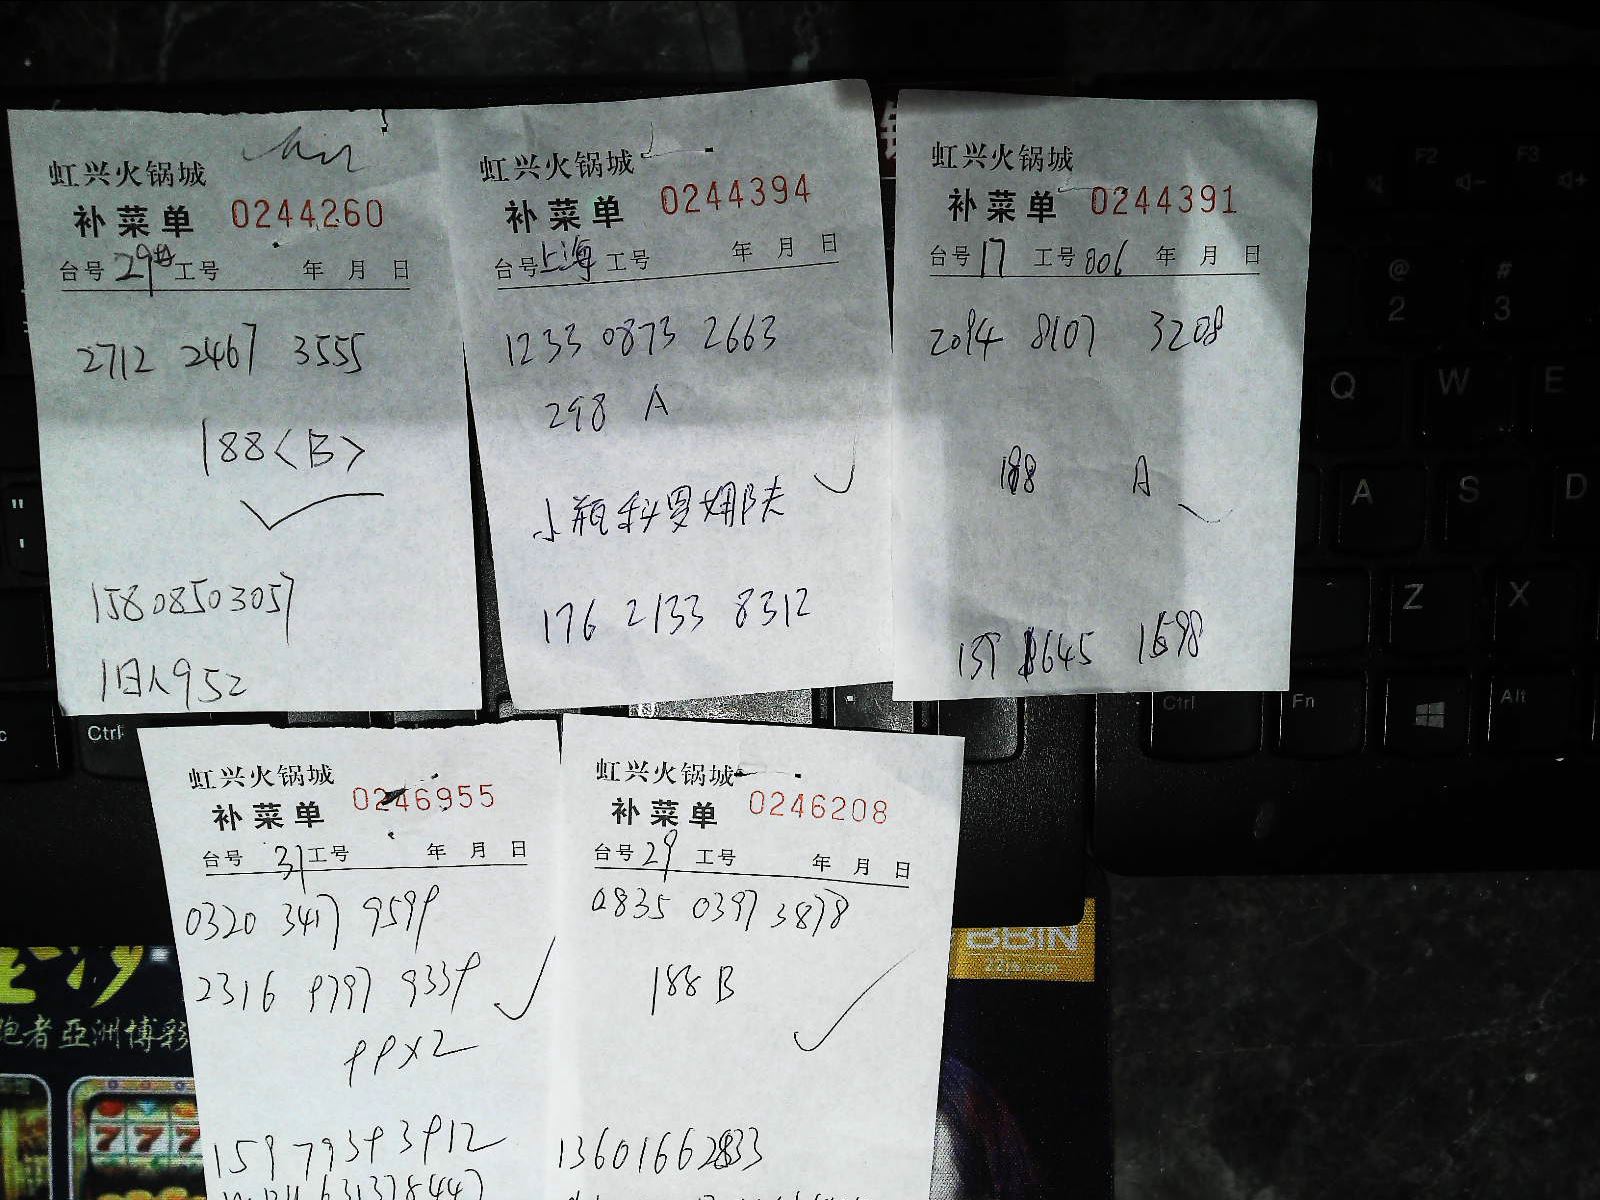 虹兴火锅城
补菜单 0244260
台号 29 工号 年 月 日
2712 2467 3555
188<B>
15808503057
1日人952
虹兴火锅城
补菜单 0244394
台号 上海 工号 年 月 日
1233 0873 2663
298 A
小瓶科罗娜
176 2133 8312
虹兴火锅城
补菜单 0244391
台号 17 工号 006 年 月 日
2094 8107 3208
188 A
139 1598
虹兴火锅城
补菜单 0246955
台号 31 工号 年 月 日
0320 3417 9599
2316 9797 9339
99x2
159 7939 3912
虹兴火锅城
补菜单 0246208
台号 29 工号 年 月 日
0835 0397 3878
188 B
1360166
BBIN
跑者亞洲博彩
777
F2
F3
@
2
#
3
Q
W
E
A
S
D
Z
X
Ctrl
Ctrl
Fn
Alt